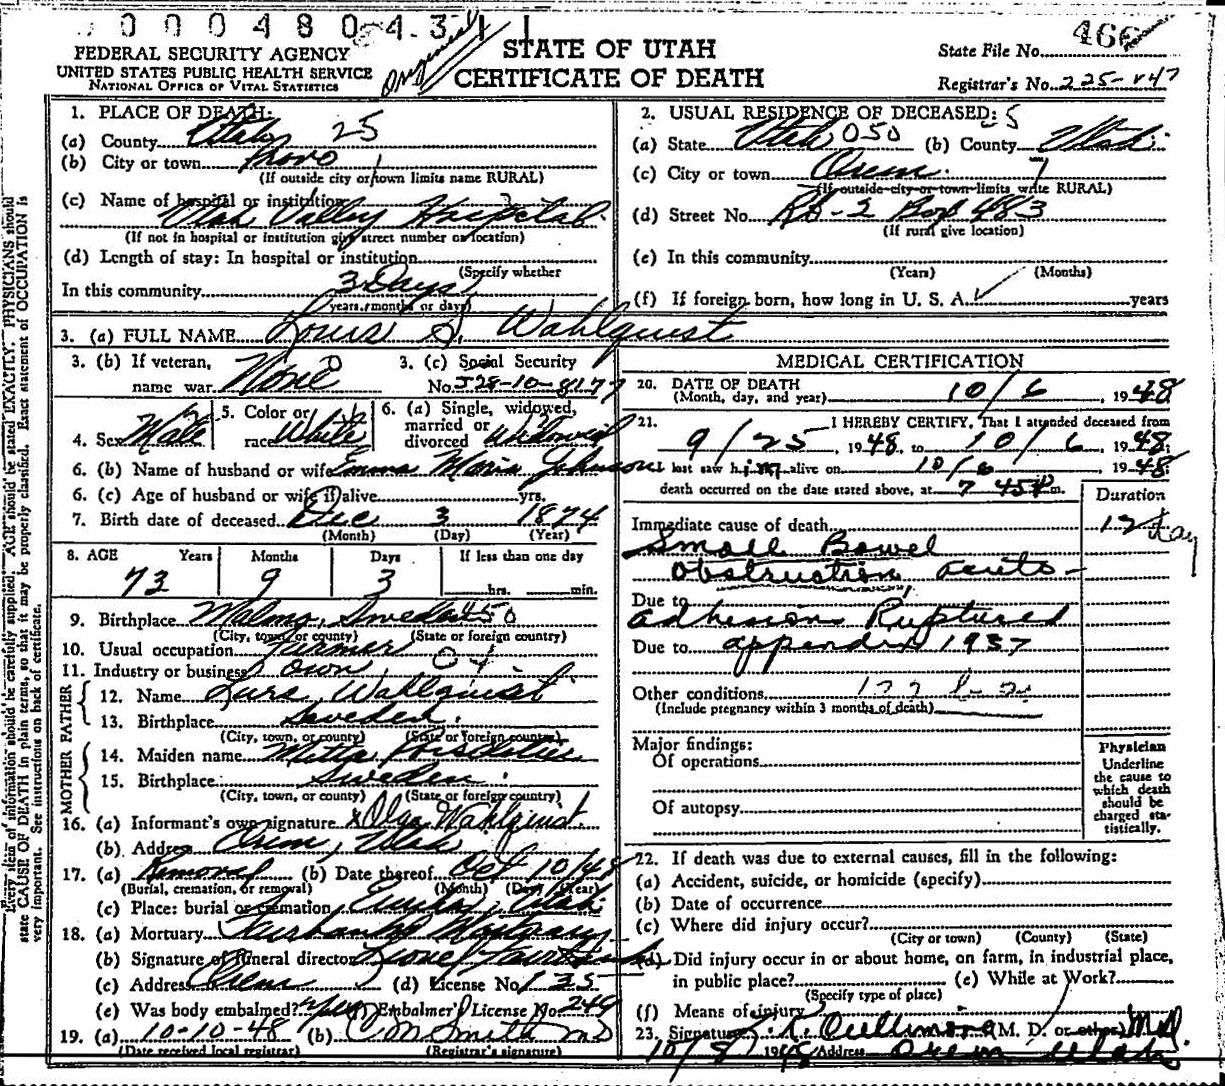 0 0 0 4 8 0 4 3 1 1
Original
466
FEDERAL SECURITY AGENCY
UNITED STATES PUBLIC HEALTH SERVICE
NATIONAL OFFICE OF VITAL STATISTICS
STATE OF UTAH
CERTIFICATE OF DEATH
State File No.
Registrar's No. 225-
Every item of information should be carefully supplied. AGE should be stated EXACTLY. PHYSICIANS should
state CAUSE OF DEATH in plain terms, so that it may be properly classified. Exact statement of OCCUPATION is
very important. See instructions on back of certificate.
1. PLACE OF DEATH:
(a) County Utah 25
(b) City or town Provo
(If outside city or town limits name RURAL)
(c) Name of hospital or institution
Utah Valley Hospital
(If not in hospital or institution give street number or location)
(d) Length of stay: In hospital or institution
(Specify whether
In this community 3 Days
years, months or days)
2. USUAL RESIDENCE OF DECEASED: 5
(a) State Utah 050 (b) County Utah
(c) City or town Orem
(If outside city or town limits write RURAL)
(d) Street No. Rt-2 Box 483
(If rural give location)
(e) In this community
(Years) (Months)
(f) If foreign born, how long in U. S. A. years
3. (a) FULL NAME Louis S. Wahlquist
3. (b) If veteran,
name war None
3. (c) Social Security
No. 528-10-8177
4. Sex Male
5. Color or
race White
6. (a) Single, widowed,
married or
divorced Widowed
6. (b) Name of husband or wife Emma Maria Johnson
6. (c) Age of husband or wife if alive yrs.
7. Birth date of deceased Dec 3 1874
(Month) (Day) (Year)
8. AGE Years Months Days If less than one day
73 9 3 hrs. min.
9. Birthplace Malmo, Sweden 450
(City, town or county) (State or foreign country)
10. Usual occupation farmer
11. Industry or business own
FATHER
12. Name Lars Wahlquist
13. Birthplace Sweden
(City, town, or county) (State or foreign country)
MOTHER
14. Maiden name
15. Birthplace Sweden
(City, town, or county) (State or foreign country)
16. (a) Informant's own signature x Olga Wahlquist
(b) Address Orem, Utah
17. (a) Removal (b) Date thereof Oct 10/48
(Burial, cremation, or removal) (Month) (Day) (Year)
(c) Place: burial or cremation Eureka, Utah
18. (a) Mortuary Fairbanks Mortuary
(b) Signature of funeral director
(c) Address Orem (d) License No. 135
(e) Was body embalmed? yes Embalmer's License No. 249
19. (a) 10-10-48 (b) C M Smith MD
(Date received local registrar) (Registrar's signature)
MEDICAL CERTIFICATION
20. DATE OF DEATH
(Month, day, and year) 10/6, 1948
21. I HEREBY CERTIFY, That I attended deceased from
9/25, 1948, to 10/6 1948;
I last saw him alive on 10/6, 1948;
death occurred on the date stated above, at 7 45 P m.
Duration
Immediate cause of death 12 day
Small Bowel
Obstruction acute -
Due to
adhesions Ruptured
Due to appendix 1937
Other conditions
(Include pregnancy within 3 months of death)
Major findings:
Of operations
Of autopsy
Physician
Underline
the cause to
which death
should be
charged sta-
tistically.
22. If death was due to external causes, fill in the following:
(a) Accident, suicide, or homicide (specify)
(b) Date of occurrence
(c) Where did injury occur?
(City or town) (County) (State)
(d) Did injury occur in or about home, on farm, in industrial place,
in public place? (e) While at Work?
(Specify type of place)
(f) Means of injury
23. Signature Cullimore (M. D. or other) MD
10/8/ 1948 Address Orem Utah